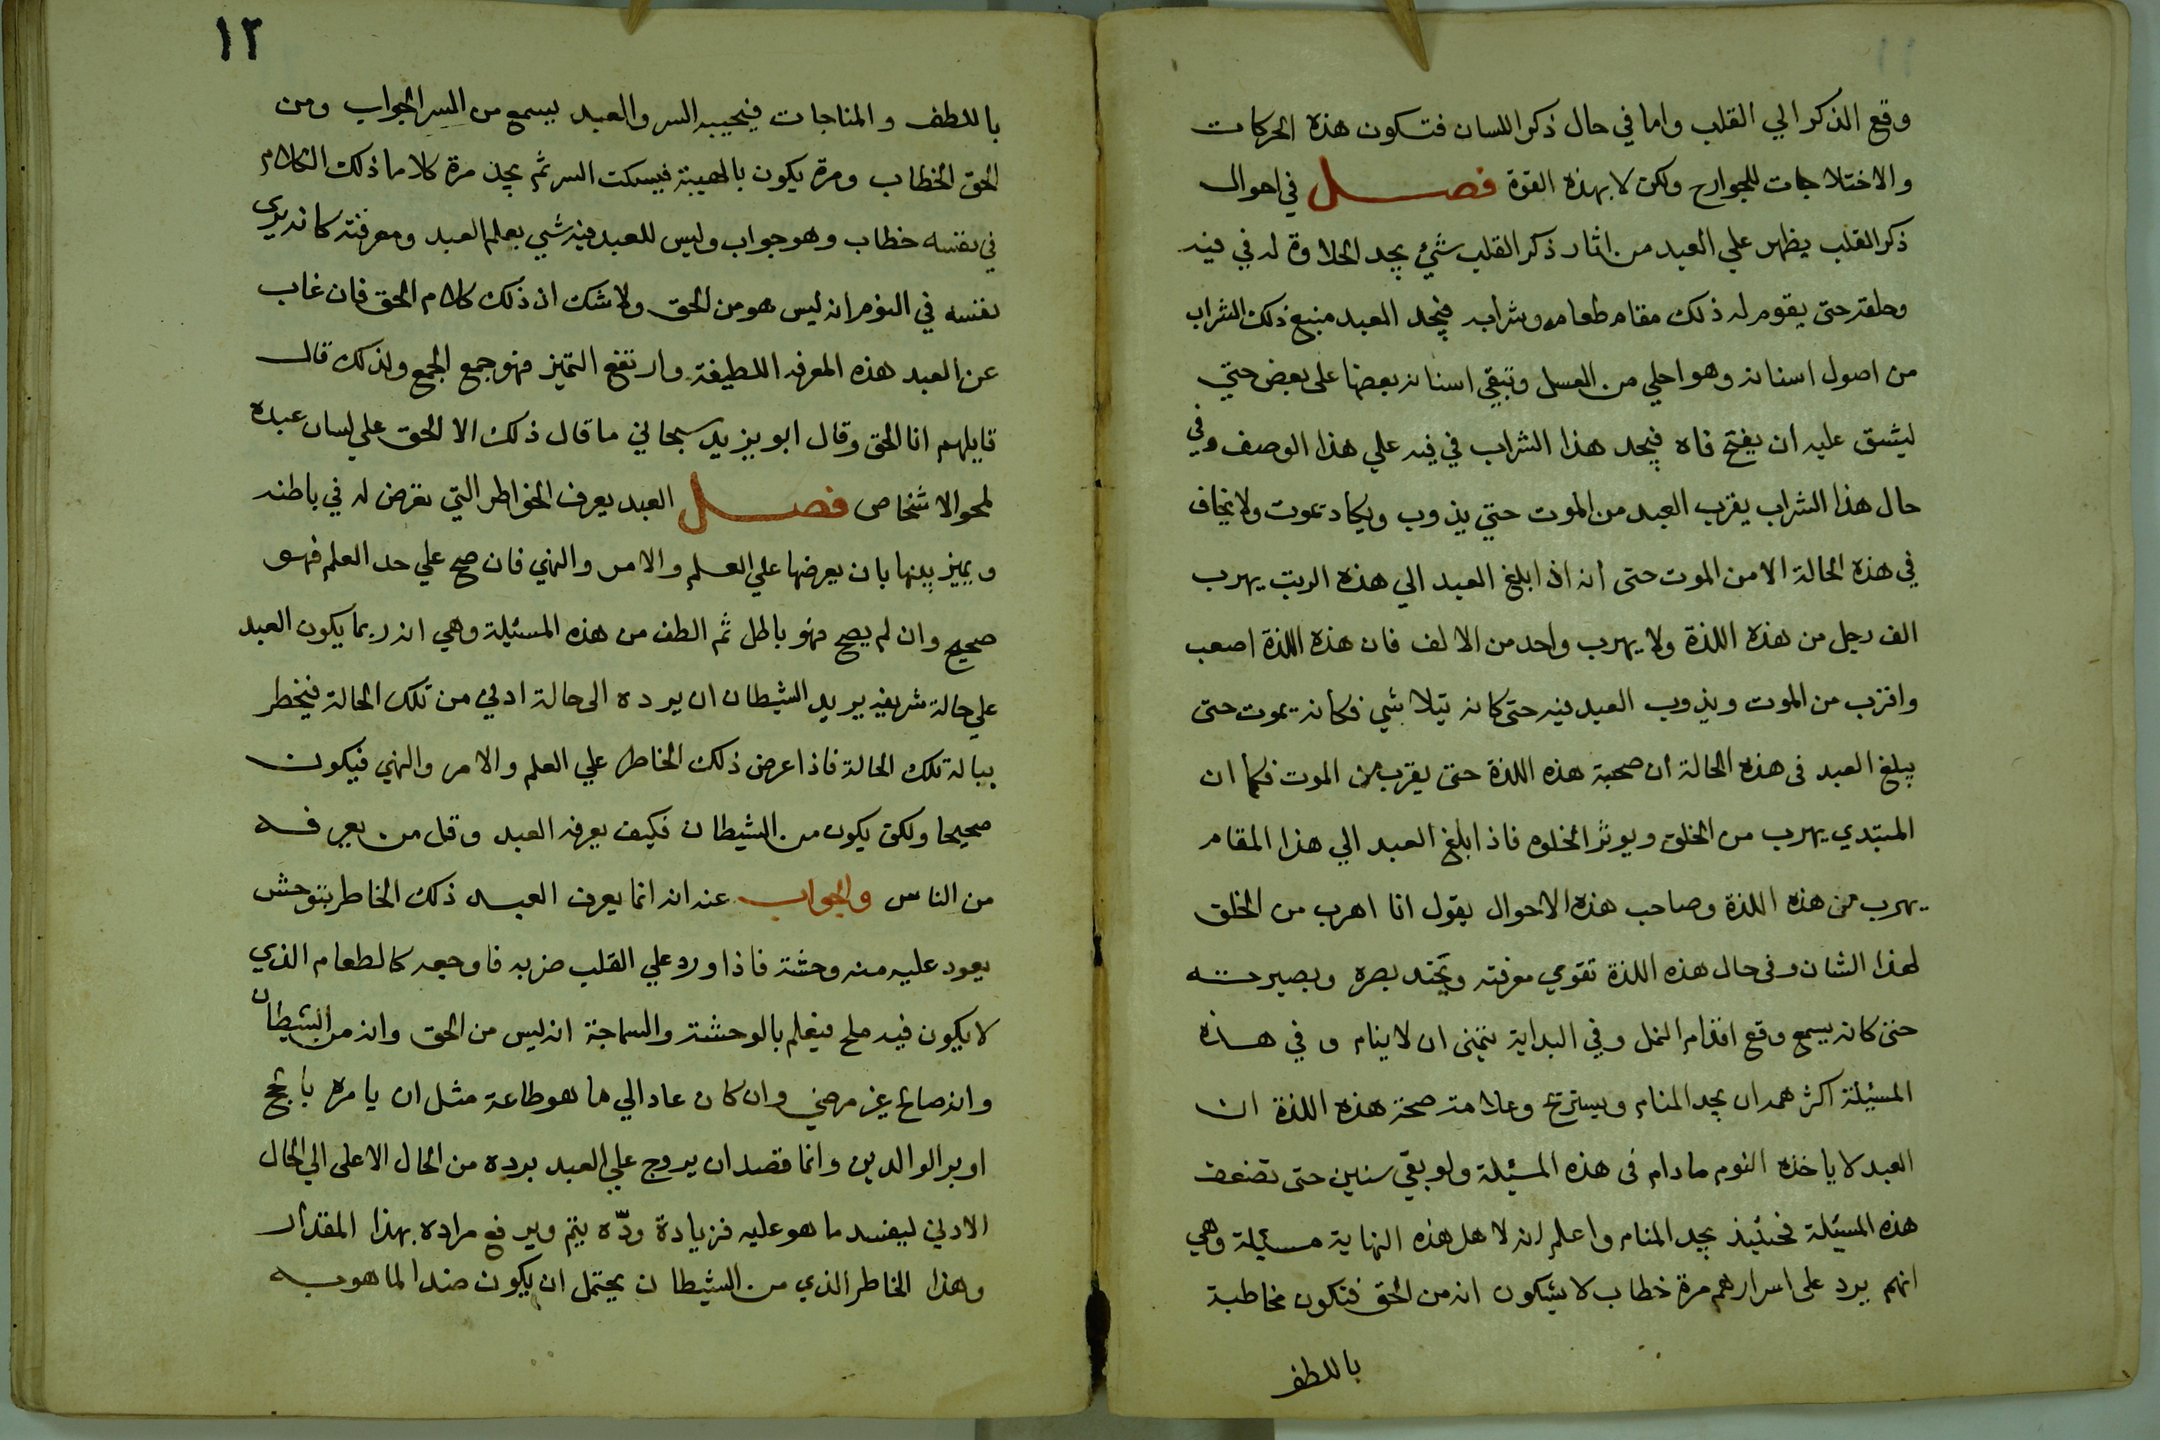 وقع الذكر الي القلب واما في حال ذكر اللسان فتكون هذه الحركات
والاختلاجات للجوارح ولكن لا بهذه القوة فصل في احوال
ذكر القلب يظهر علي العبد من اثار ذكر القلب شئ يجد الحلاوة له في فيه
وحلقه حتى يقوم له ذلك مقام طعامه وشرابه فيجد العبد منبع ذلك الشراب
من اصول اسنانه وهو احلي من العسل وتبقي اسنانه بعضها على بعض حتي
ليشق عليه ان يفتح فاه فيجد هذا الشراب في فيه علي هذا الوصف وفي
حال هذا الشراب يقرب العبد من الموت حتي يذوب ويكاد يموت ولا يخاف
في هذه الحالة الا من الموت حتى انه اذا بلغ العبد الي هذه يهرب
الف رجل من هذه اللذة ولا يهرب واحد من الالف فان هذه اللذة اصعب
واقرب من الموت ويذوب العبد فيه حتى كانه يتلاشي فكانه يموت حتى
يبلغ العبد فى هذه الحالة ان صحبة هذه اللذة حتى يقرب من الموت فكما ان
المبتدي يهرب من الخلق ويوثر الخلوه فاذا بلغ العبد الي هذا المقام
يهرب من هذه اللذة وصاحب هذه الاحوال يقول انا اهرب من الخلق
لهذا الشان وفى حال هذه اللذة تقوي معرفته ويحتد بصره وبصيرته
حتى كانه يسمع وقع اقدام النمل وفي البداية يتمنى ان لا ينام و في هذه
المسئلة اكثر همه ان يجد المنام ويستريح وعلامة صحة هذه اللذة ان
العبد لا ياخذه النوم مادام فى هذه المسئلة ولو بقي سنين حتى تضعف
هذه المسئلة فحينئيذ يجد المنام واعلم انه لاهل هذه النهاية مسئلة وهي
انهم يرد على اسرارهم مرة خطاب لا يشكون انه من الحق فتكون مخاطبة
باللطف
١٢
باللطف والمناجات فيجيبه السر والعبد يسمع من السر الجواب ومن
الحق الخطاب ومرة يكون بالهيبة فيسكت السر ثم يجد مرة كلاما ذلك الكلام
في نفسه خطاب وهو جواب وليس للعبد فيه شي بعلم العبد ومعرفته كانه يري
نفسه في النوم انه ليس هو من الحق ولا شك ان ذلك كلام الحق فان غاب
عن العبد هذه المعرفه اللطيفة وارتفع التميز فهو جمع الجمع ولذلك قال
قايلهم انا الحق وقال ابو يزيد سبحاني ما قال ذلك الا الحق علي لسان عبده
لمحو الاشخاص فصل العبد يعرف الخواطر التي تعرض له في باطنه
ويميز بينها بان يعرضها علي العلم والامر والنهي فان صح علي حد العلم فهو
صحيح وان لم يصح فهو باطل ثم الطف من هذه المسئيلة وهي انه ربما يكون العبد
علي حالة شريفه يريد الشيطان ان يرده الى حالة ادني من تلك الحالة فيخطر
بباله تلك الحالة فاذا عرض ذلك الخاطر علي العلم والامر والنهي فيكون
صحيحا ولكن يكون من الشيطان فكيف يعرفه العبد وقل من يعرفه
من الناس والجواب عنه انه انما يعرف العبد ذلك الخاطر بتوحش
يعود عليه منه وحشة فاذا ورد علي القلب ضربه فاوجعه كالطعام الذي
لا يكون فيه ملح فيعلم بالوحشة والسماجة انه ليس من الحق وانه من الشيطان
وانه صانع غير مرضي وان كان عاد الي ما هو طاعة مثل ان يامره بالحج
او بر الوالدين وانما قصد ان يروج علي العبد برده من الحال الاعلى الي الحال
الادني ليفسد ما هو عليه فزيادة ودّه يتم ويرفع مراده بهذا المقدار
وهذا الخاطر الذي من الشيطان يحتمل ان يكون ضدا لما هو به